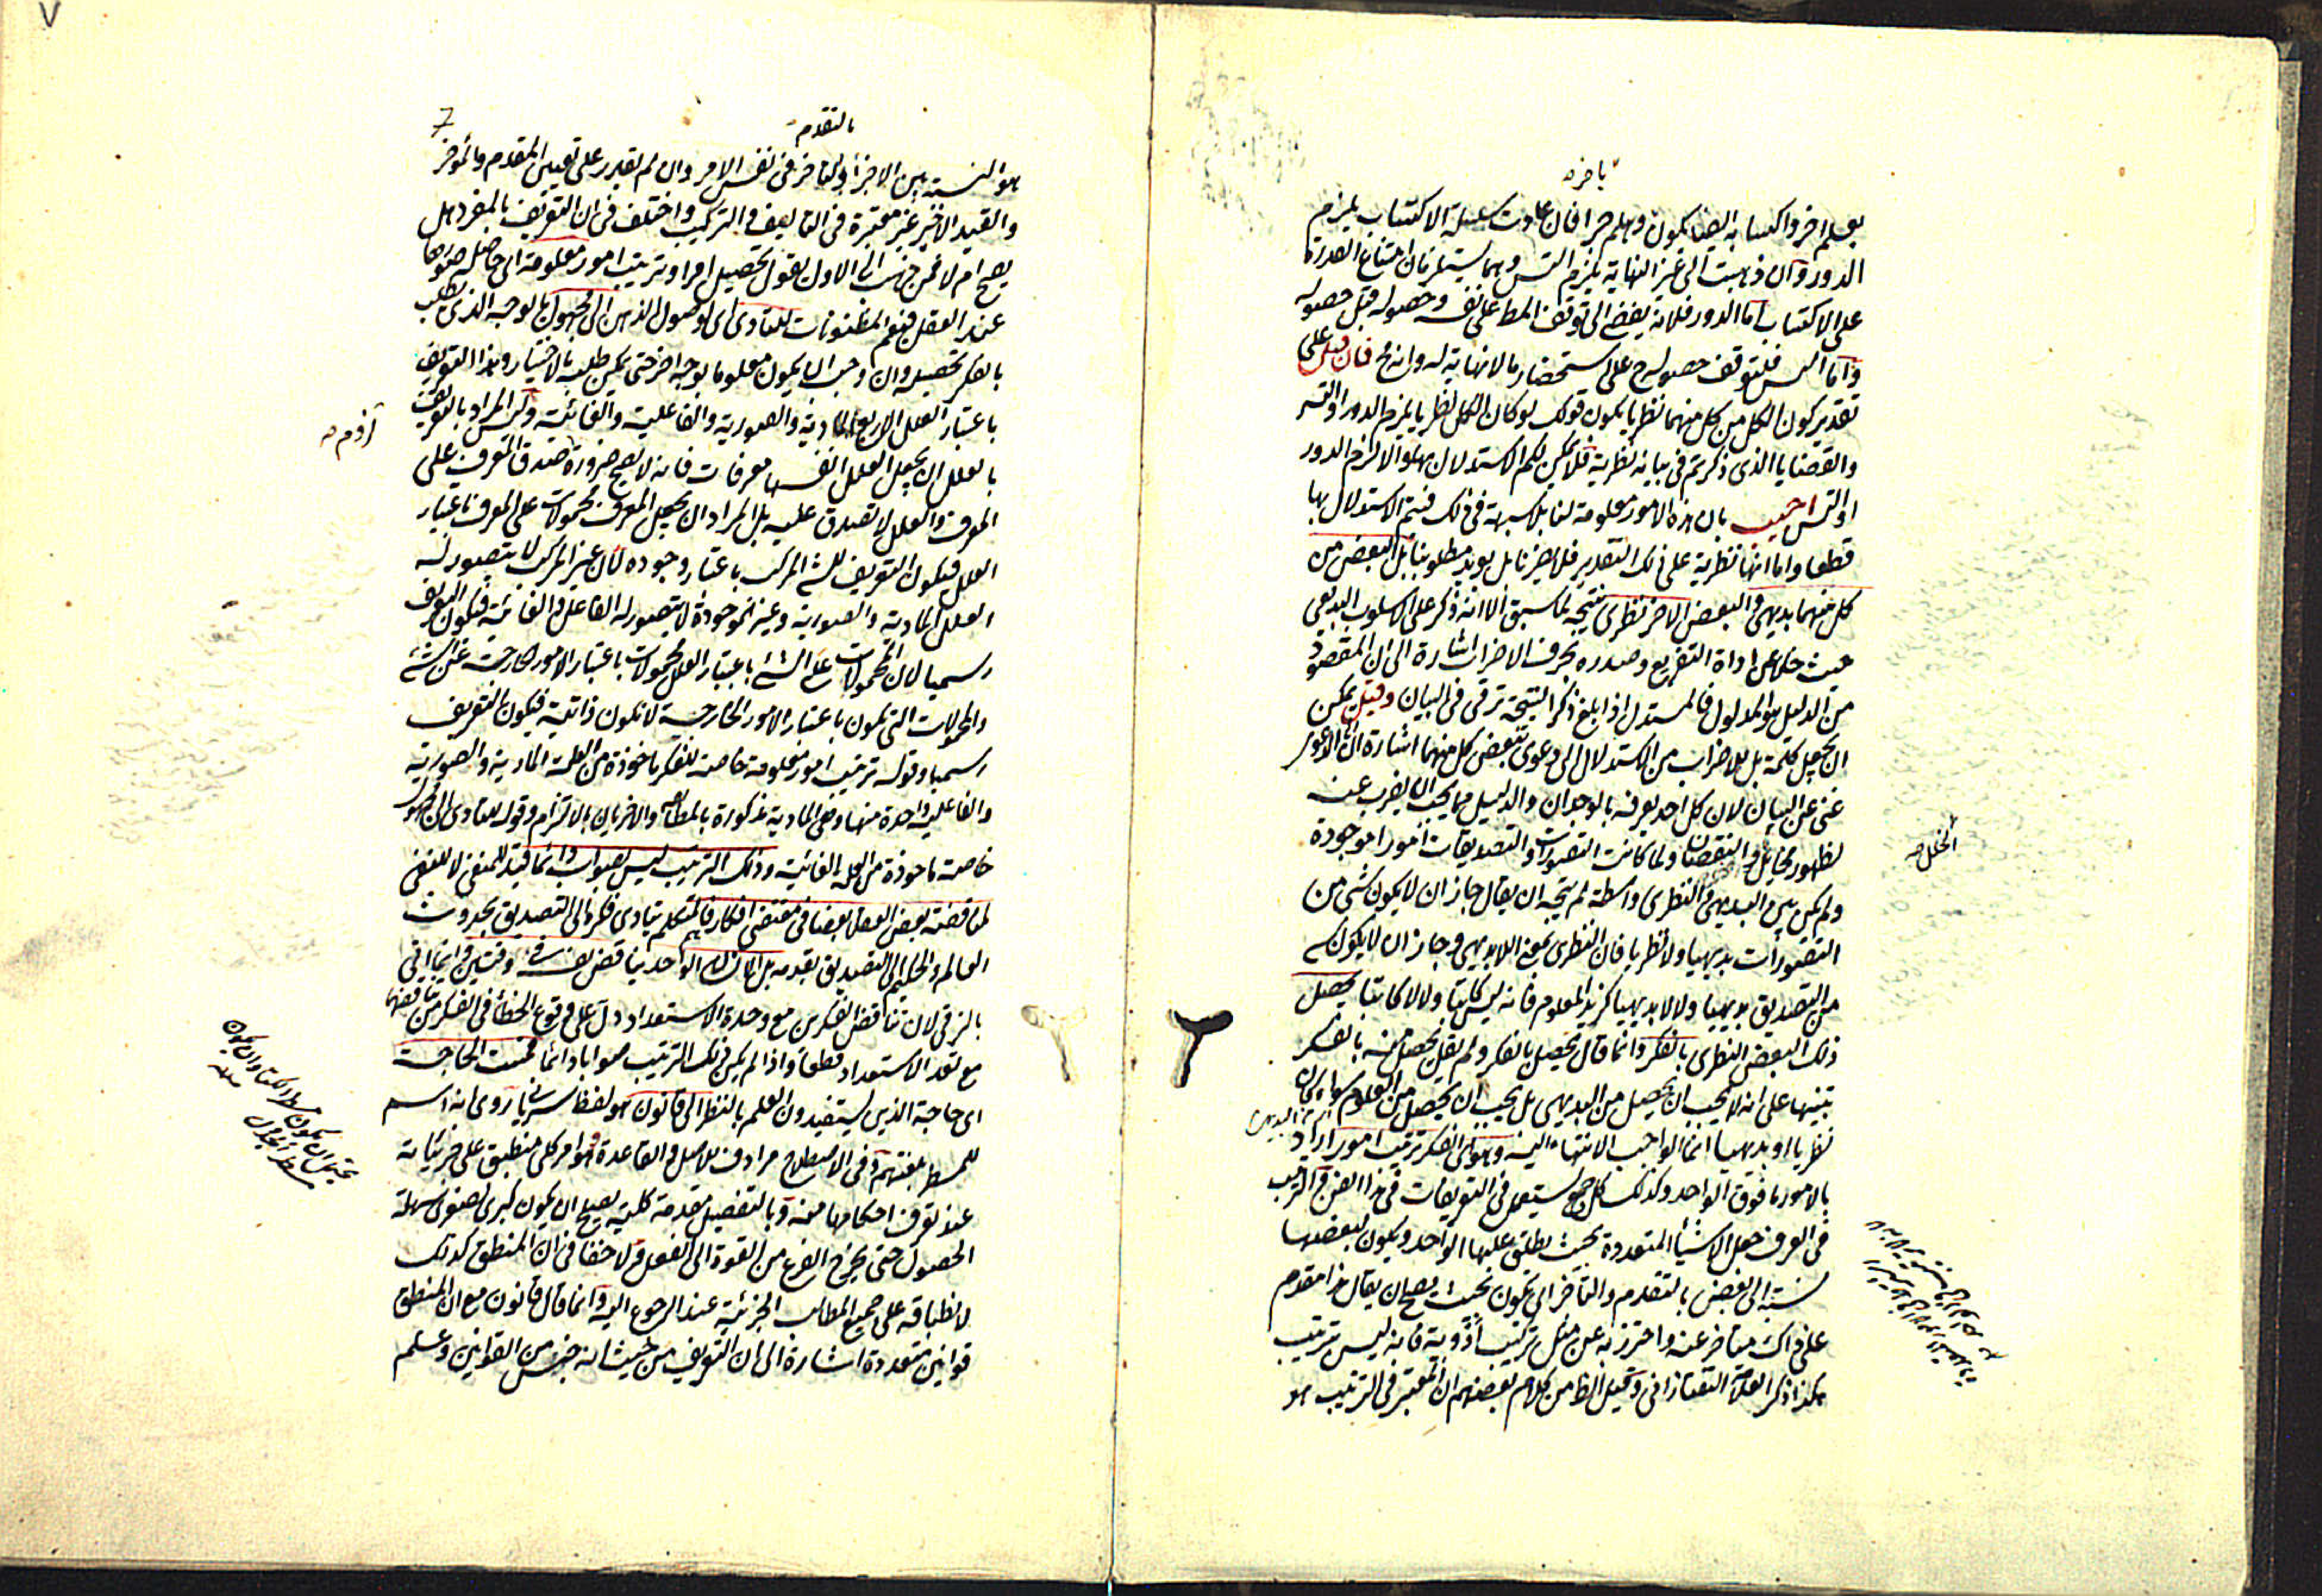 باخره
بعلم اخر واكتسابه ايضا يكون وهلم جرا فان عادت سلسلة الاكتساب يلزم
الدور وان ذهبت الى غير النهاية يلزم التس وهما يستلزمان امتناع القدرة
على الاكتساب اما الدور فلانه يفضى الى توقف المط على نفسه وحصوله قبل حصوله
واما التس فلتوقف حصوله ح على استحضار مالانهاية له وانه مح فان قيل على
تقدير كون الكل من كل منهما نظريا يكون قولك لو كان الكل نظريا يلزم الدور او التسـ
والقضايا الذى ذكرتم فى بيانه نظرية فلا يمكن لكم الاستدلال بها والا لزم الدور
او التس اجيب بان هذه الامور معلومة لنا بلا شبهة فى ذلك فيتم الاستدلال بها
قطعا واما انها نظرية على ذلك التقدير فلا يضرنا بل يؤيد مطلوبنا بل البعض من
كل منهما بديهى والبعض الاخر نظرى نتيجة لما سبق الا انه ذكر على الاسلوب البديعى
حيث خلا عن اداة التفريع وصدره بحرف الاضراب اشارة الى ان المقصود
من الدليل هو المدلول فالمستدل اذا بلغ ذكر النتيجة ترقى فى البيان وقيل يمكن
ان يجعل كلمة بل للاضراب من الاستدلال الى دعوى بعض كل منهما اشارة الى ان الدعوى
غنى عن البيان لان كل احد يعرفه بالوجدان والدليل مما يجب ان يضرب عنه
لظهور والنقصان ولما كانت التصورات والتصديقات امورا موجودة
ولم يكن بين البديهى والنظرى واسطة لم يتجه ان يقال جاز ان لا يكون شئ من
التصورات بديهيا ولا نظريا فان النظرى بمعنى اللابديهى وجاز ان لا يكون شئ
من التصديق بديهيا ولا لا بديهيا كزيد المعدوم فانه ليس كاتبا ولا لا كاتبا يحصل
ذلك البعض النظرى بالفكر وانما قال يحصل بالفكر ولم يقل يحصل منه بالفكر
تنبيها على انه لا يجب ان يحصل من البديهى بل يجب ان يحصل من العلوم سواء كان
نظريا او بديهيا انما الواجب الانتهاء اليه وهو اى الفكر ترتيب امور اراد
بالامور ما فوق الواحد وكذلك كل جمع يستعمل فى التعريفات فى هذا الفن والترتيب
فى العرف جعل الاشياء المتعددة بحيث يطلق عليها الواحد ويكون لبعضها
نسبة الى بعض بالتقدم والتأخر اى تكون بحيث يصلح ان يقال هذا مقدم
على ذاك متأخر عنه واحترز به عن مثل تركيب ادوية فانه ليس ترتيب
هكذا ذكر العلامة التفتازانى وقيل الظ من كلام بعضهم ان المعتبر فى الترتيب هو
الخلل صح
7
بالتقدم
هو النسبة بين الاجزاء والتاخر فى نفس الامر وان لم يقدر على تعيين المقدم والمؤخر
والقيد الاخير غير معتبرة فى التاليف والتركيب واختلف فى ان التعريف بالمفرد هل
يصح ام لا فمن جنح الى الاول يقول تحصيل امر او ترتيب امور معلومة اى حاصلة صورها
عند العقل فيعم المظنونات للتادى اى لوصول الذهن الى المجهول بالوجه الذى يطلب
بالفكر تحصيله وان وجب ان يكون معلوما بوجه اخر حتى يمكن طلبه بالاختيار وهذا التعريف
باعتبار العلل الاربع المادية والصورية والفاعلية والغائية وليس المراد بالتعريف
بالعلل ان يجعل العلل انفسها معرفات فانه لا يصح ضرورة صدق المعرف على
المعرف والعلل لا تصدق عليه بل المراد ان يجعل المعرف محمولات على المعرف باعتبار
العلل فيكون التعريف للشئ المركب باعتبار وجوده لان غير المركب لا يتصور له
العلل المادية والصورية وغير الموجودة لا يتصور له الفاعل والغائية فيكون التعريف
رسميا لان المحمولات على الشئ باعتبار العلل محمولات باعتبار الامور الخارجة عن الشئ
والمحمولات التى تكون باعتبار الامور الخارجية لا تكون ذاتية فيكون التعريف
رسميا وقوله ترتيب امور معلومة خاصة للفكر ماخوذة من العلة المادية والصورية
والفاعلية واحدة منها وهى المادية مذكورة بالمطابقة والاخريان بالالتزام وقوله للتادى الى مجهول
خاصة ماخوذة من العلة الغائية وذلك الترتيب ليس بصواب دائما قيد للمنفى لا للنفى
لمناقضة بعض العقلاء بعضا فى مقتضى افكارهم فالمتكلم يتادى فكره الى التصديق بحدوث
العالم والحكيم الى التصديق بقدمه بل الانسان الواحد يناقض نفسه فى وقتين وانما اتى
بالترقى لان تناقض الفكرين مع وحدة الاستعداد دل على وقوع الخطأ فى الفكر من تناقضهما
مع تعدد الاستعداد قطعا واذا لم يكن ذلك الترتيب صوابا دائما فمست الحاجة
اى حاجة الذين يستفيدون العلم بالنظر الى قانون هو لفظ سريانى روى انه اسم
للمسطر بلغتهم وفى الاصطلاح مرادف للاصل والقاعدة وهو امر كلى منطبق على جزئياته
عند تعرف احكامها منه وبالتفصيل مقدمة كلية يصلح ان يكون كبرى لصغرى سهلة
الحصول حتى يخرج الفرع من القوة الى الفعل ولا خفا فى ان المنطق كذلك
لانطباقه على جميع المطالب الجزئية عند الرجوع اليه وانما قال قانون مع ان المنطق
قوانين متعددة اشارة الى ان التعريف من حيث انه جنس من القوانين وعلم